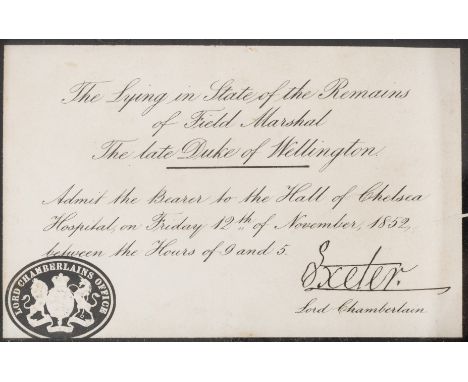 The Lying in State of the Remains
of Field Marshal
The late Duke of Wellington.
Admit the Bearer to the Hall of Chelsea
Hospital, on Friday 12th of November, 1852,
between the Hours of 9 and 5.
Exeter.
Lord Chamberlain
LORD CHAMBERLAINS OFFICE